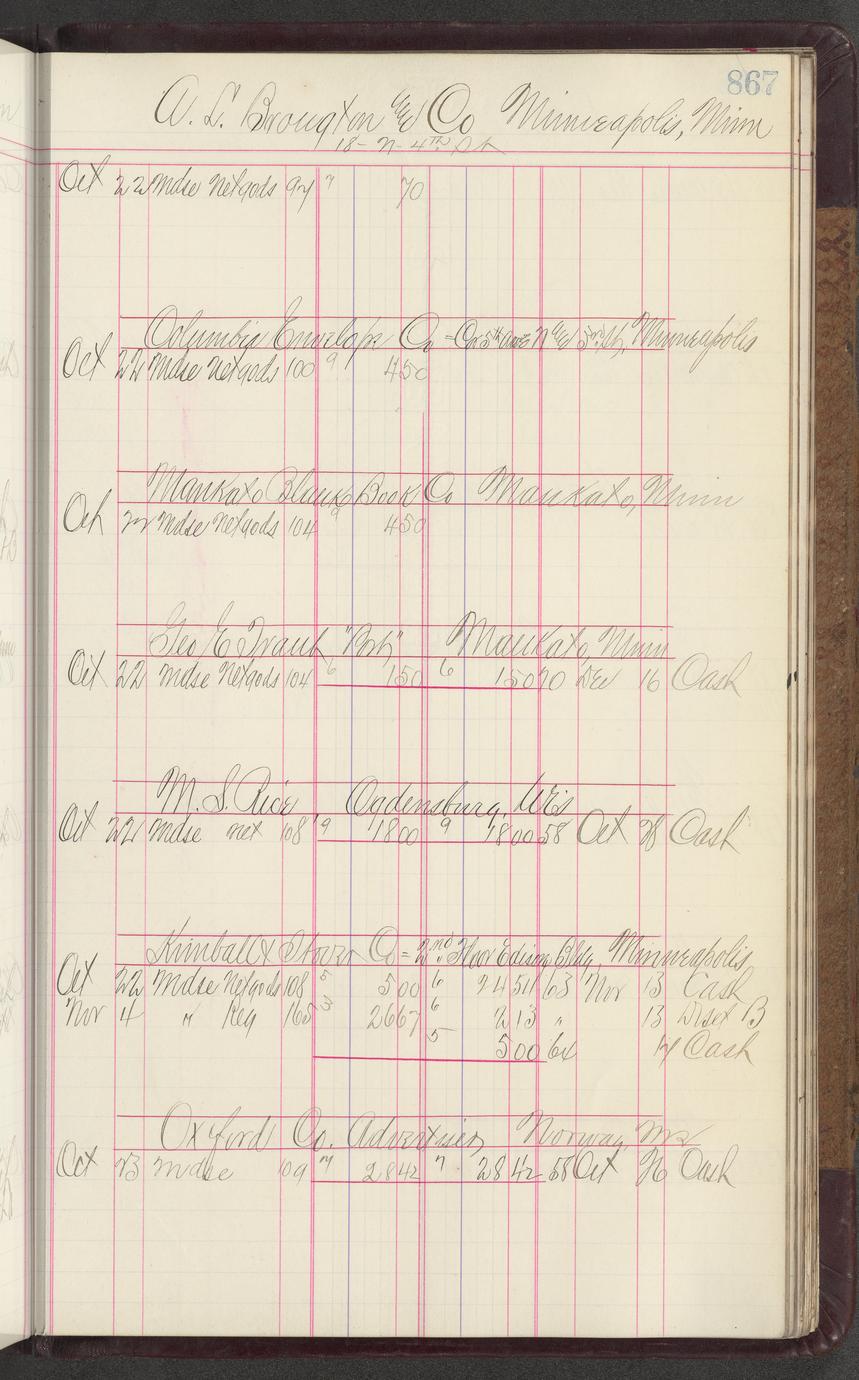 867
A. L. Brougton & Co Minneapolis, Minn
18 - N - 4TH St
Oct 22 Mdse Net gods 94 7 70
Columbia Envelope Co - Cor 5th Ave N & 5th St, Minneapolis
Oct 22 Mdse Net gods 100 9 450
Mankato Blank Book Co Mankato, Minn
Oct 22 Mdse Net gods 104 9 450
Geo E Traub Mankato, Minn
Oct 22 Mdse Net gods 104 6 150 6 150 70 Dec 16 Cash
M. S. Rice Ogdensburg, Wis
Oct 22 Mdse net 108 9 1800 9 1800 58 Oct 28 Cash
Kimball & Storer Co = 2nd Floor Edison Bldg, Minneapolis
Oct 22 Mdse Net gods 108 5 500 6 2454 63 Nov 13 Cash
Nov 4 " Reg 165 3 2667 6 213 " 13 Disct B
5 500 64 17 Cash
Oxford Co. Advertiser, Norway, Me
Oct 23 Mdse 109 7 2842 7 2842 58 Oct 26 Cash